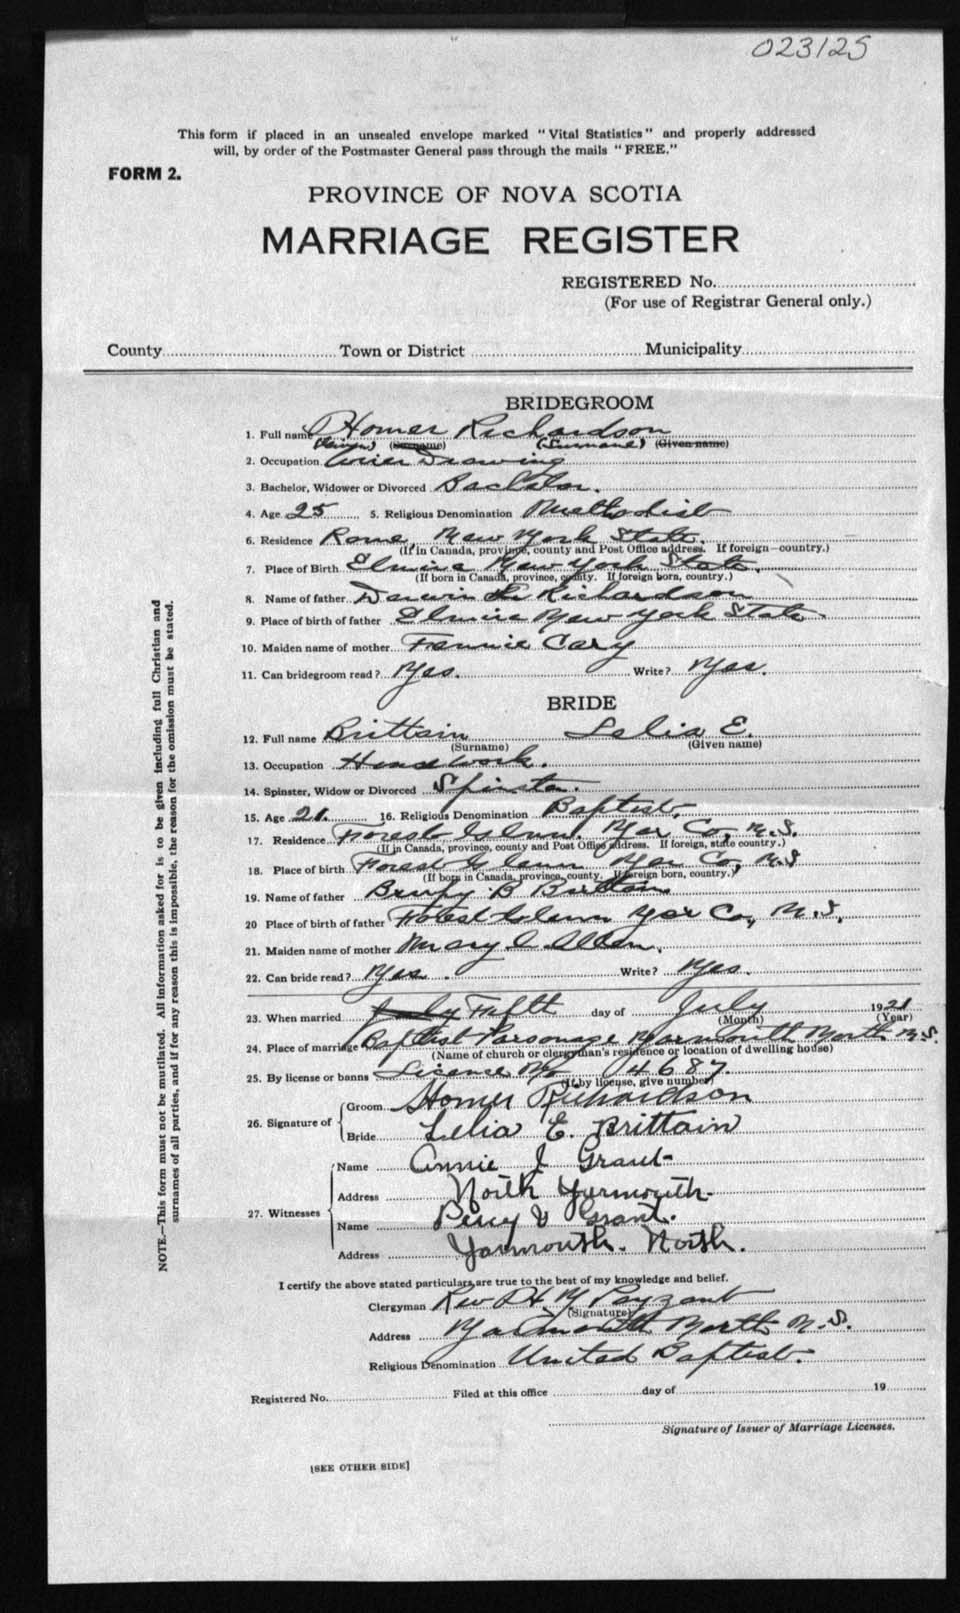 023125
This form if placed in an unsealed envelope marked "Vital Statistics" and properly addressed
will, by order of the Postmaster General pass through the mails "FREE."
FORM 2.
PROVINCE OF NOVA SCOTIA
MARRIAGE REGISTER
REGISTERED No.
(For use of Registrar General only.)
County Town or District Municipality
BRIDEGROOM
1. Full name Homer Richardson
(Given) (Surname) (Surname) (Given name)
2. Occupation Wier Drawing
3. Bachelor, Widower or Divorced Bachelor.
4. Age 25 5. Religious Denomination Methodist
6. Residence Rome, New York State.
(If in Canada, province, county and Post Office address. If foreign—country.)
7. Place of Birth Elmira New York State.
(If born in Canada, province, county. If foreign born, country.)
8. Name of father Darwin Richardson
9. Place of birth of father Elmira New York State
10. Maiden name of mother Fannie Cary
11. Can bridegroom read? Yes. Write? Yes.
BRIDE
12. Full name Brittain Lelia E.
(Surname) (Given name)
13. Occupation House work.
14. Spinster, Widow or Divorced Spinster.
15. Age 21. 16. Religious Denomination Baptist.
17. Residence Forest Glenn. Yar Co, N.S.
(If in Canada, province, county and Post Office address. If foreign, state country.)
18. Place of birth Forest Glenn Yar Co, N.S
(If born in Canada, province, county. If foreign born, country.)
19. Name of father B Brittain
20 Place of birth of father Forest Glenn Yar Co, N.S.
21. Maiden name of mother Mary Allen.
22. Can bride read? Yes. Write? Yes.
23. When married Fifth day of July 1921
(Month) (Year)
24. Place of marriage Baptist Parsonage Yarmouth North N.S.
(Name of church or clergyman's residence or location of dwelling house)
25. By license or banns Licence No 4687.
(If by license, give number)
26. Signature of Groom Homer Richardson
Bride Lelia E. Brittain
27. Witnesses Name Annie J Grant
Address North Yarmouth
Name Percy V Grant.
Address Yarmouth. North.
I certify the above stated particulars are true to the best of my knowledge and belief.
Clergyman Rev Payzant
(Signature)
Address Yarmouth North N.S.
Religious Denomination United Baptist.
Registered No. Filed at this office day of 19
Signature of Issuer of Marriage Licenses.
[SEE OTHER SIDE]
NOTE.—This form must not be mutilated. All information asked for is to be given including full Christian and
surnames of all parties, and if for any reason this is impossible, the reason for the omission must be stated.